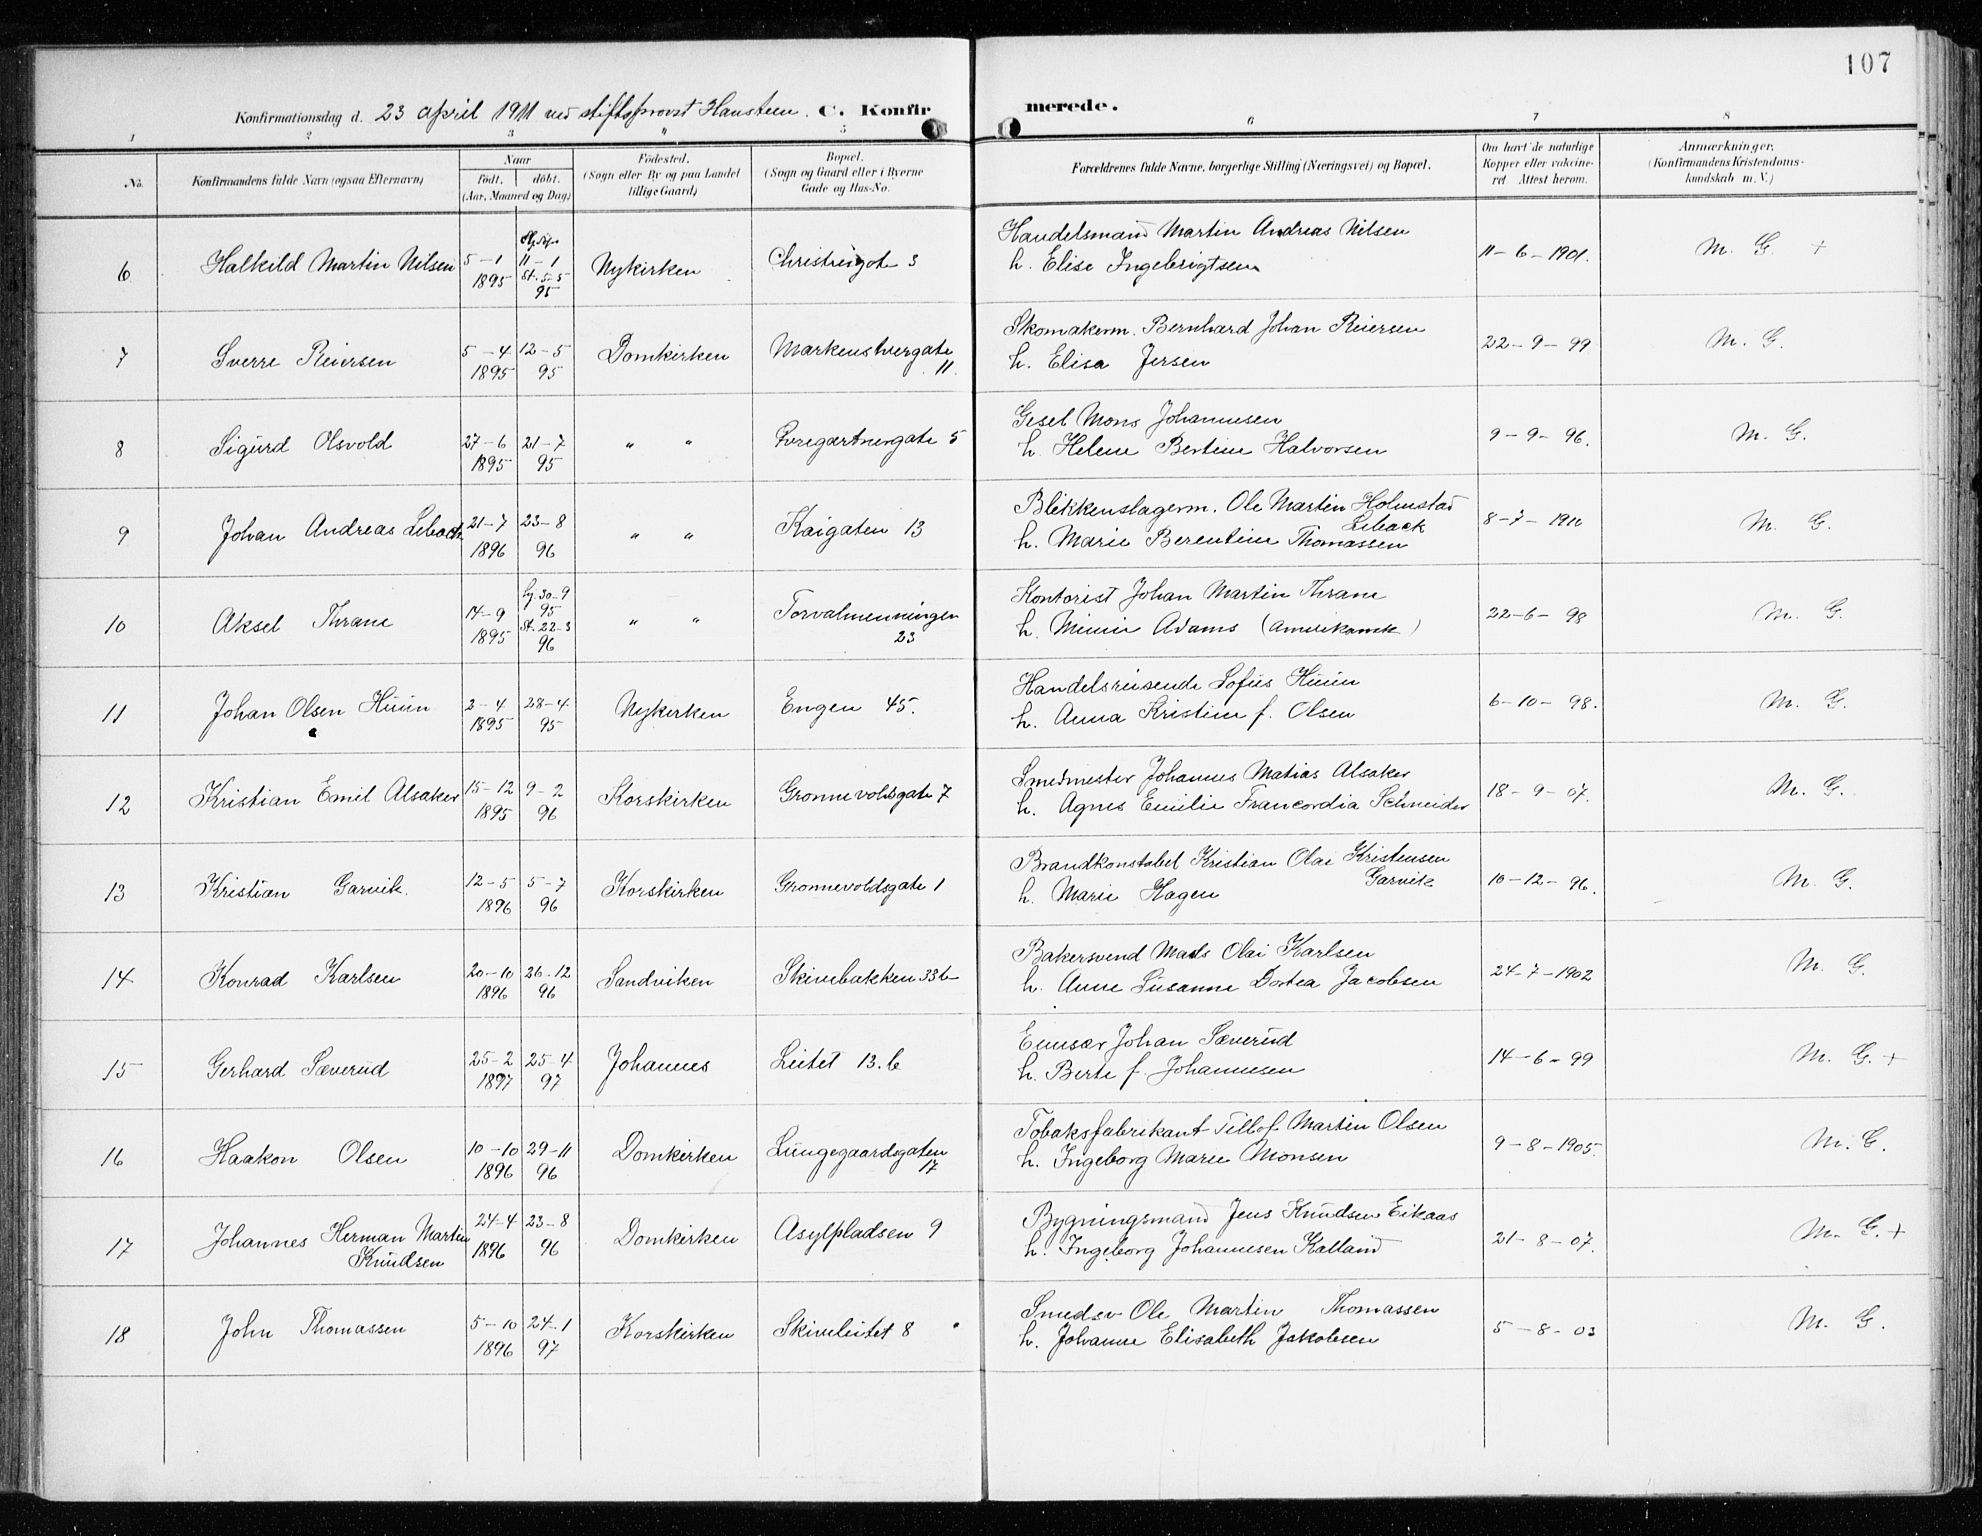 107
Konfirmationsdag d. 23 april 1911 ved stiftsprovst Hansteen. C. Konfirmerede.
1 2 3 4 5 6 7 8
No. Konfirmandens fulde Navn (ogsaa Efternavn) Naar født, døbt. (Aar, Maaned og Dag) Fødested. (Sogn eller By og paa Landet tillige Gaard) Bopæl. (Sogn og Gaard eller i Byerne Gade og Hus-No. Forældrenes fulde Navne, borgerlige Stilling (Næringsvei) og Bopæl. Om havt de naturlige Kopper eller vakcineret. Attest herom. Anmærkninger. (Konfirmandens Kristendomskundskab m. V.)
6 Halkild Martin Nilsen 5-1 1895 11-1 St. 5-5 95 Nykirken Christiesgate 3 Handelsmand Martin Andreas Nilsen 11-6-1901. M. G. +
h. Elise Ingebrigtsen
7 Sverre Reiersen 5-4 1895 12-5 95 Domkirken Markensтvergate 11. Skomakerm. Bernhard Johan Reiersen 22-9-99 M. G.
h. Elisa Jersen
8 Sigurd Olsvold 27-6 1895 21-7 95 " " Øvregartnergate 5 Gesel Mons Johannesen 9-9-96. M. G.
h. Helene Bertine Halvorsen
9 Johan Andreas Leback 21-7 1896 23-8 96 " " Kaigaten 13 Blekkenslagerm. Ole Martin Holmstad Leback 8-7-1910 M. G.
h. Marie Berentine Thomassen
10 Aksel Thrane 14-9 1895 30-9 95 St. 22-3 96 " " Torvalmenningen 23 Kontorist Johan Martin Thrane 22-6-98 M. G.
h. Minnie Adams (amerikansk)
11 Johan Olsen Huun 2-4 1895 28-4 95 Nykirken Engen 45. Handelsreisende Sofus Huun 6-10-98. M. G.
h. Anna Kristine f. Olsen
12 Kristian Emil Alsaker 15-12 1895 9-2 96 Korskirken Grønnevoldsgate 7 Smedmester Johannes Matias Alsaker 18-9-07. M. G.
h. Agnes Emilie Francordia Schneider
13 Kristian Garvik. 12-5 1896 5-7 96 Korskirken Grønnevoldsgate 1 Brandkonstabel Kristian Olai Kristensen Garvik 10-12-96. M. G.
h. Marie Hagen
14 Konrad Karlsen 20-10 1896 26-12 96 Sandviken Skivebakken 33b Bakersvend Mads Olai Karlsen 24-7-1902 M. G.
h. Anne Susanne Dortea Jacobsen
15 Gerhard Sæverud 25-2 1897 25-4 97 Johannes Leitet 13.b Johan Sæverud 14-6-99 M. G. +
h. Berte f. Johannesen
16 Haakon Olsen 10-10 1896 29-11 96 Domkirken Lungegaardsgaten 17 Tobaksfabrikant Tellef Martin Olsen 9-8-1905. M. G.
h. Ingeborg Marie Monsen
17 Johannes Herman Martin Knudsen 24-4 1896 23-8 96 Domkirken Asylpladsen 9 Bygningsmand Jens Knudsen Eikaas 21-8-07. M. G. +
h. Ingeborg Johannesen Kalland
18 John Thomassen 5-10 1896 24-1 97 Korskirken Skiveleitet 8 Smedsv Ole Martin Thomassen 5-8-03 M. G.
h. Johanne Elisabeth Jakobsen